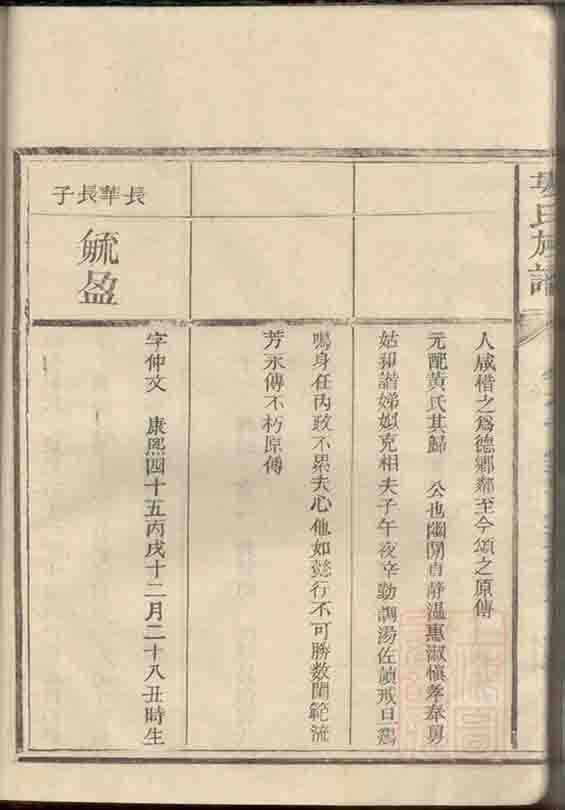 氏族譜
人咸惜之爲德鄉鄰至今頌之原傳
元配黄氏其歸 公也幽閒貞靜溫惠淑慎孝奉舅
姑和諧娣姒克相夫子午夜辛勤調湯佐讀戒旦鷄
鳴身任內政不累夫心他如懿行不可勝數閫範流
芳永傳不朽原傳
長華長子
毓盈
字仲文 康熙四十五丙戌十二月二十八丑時生